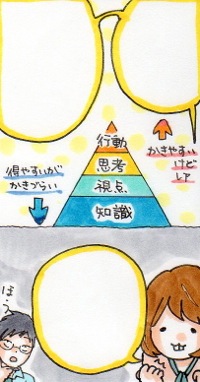 行動
思考
視点
知識
かきやすい
けど
レア
得やすいが
かきづらい
ほう